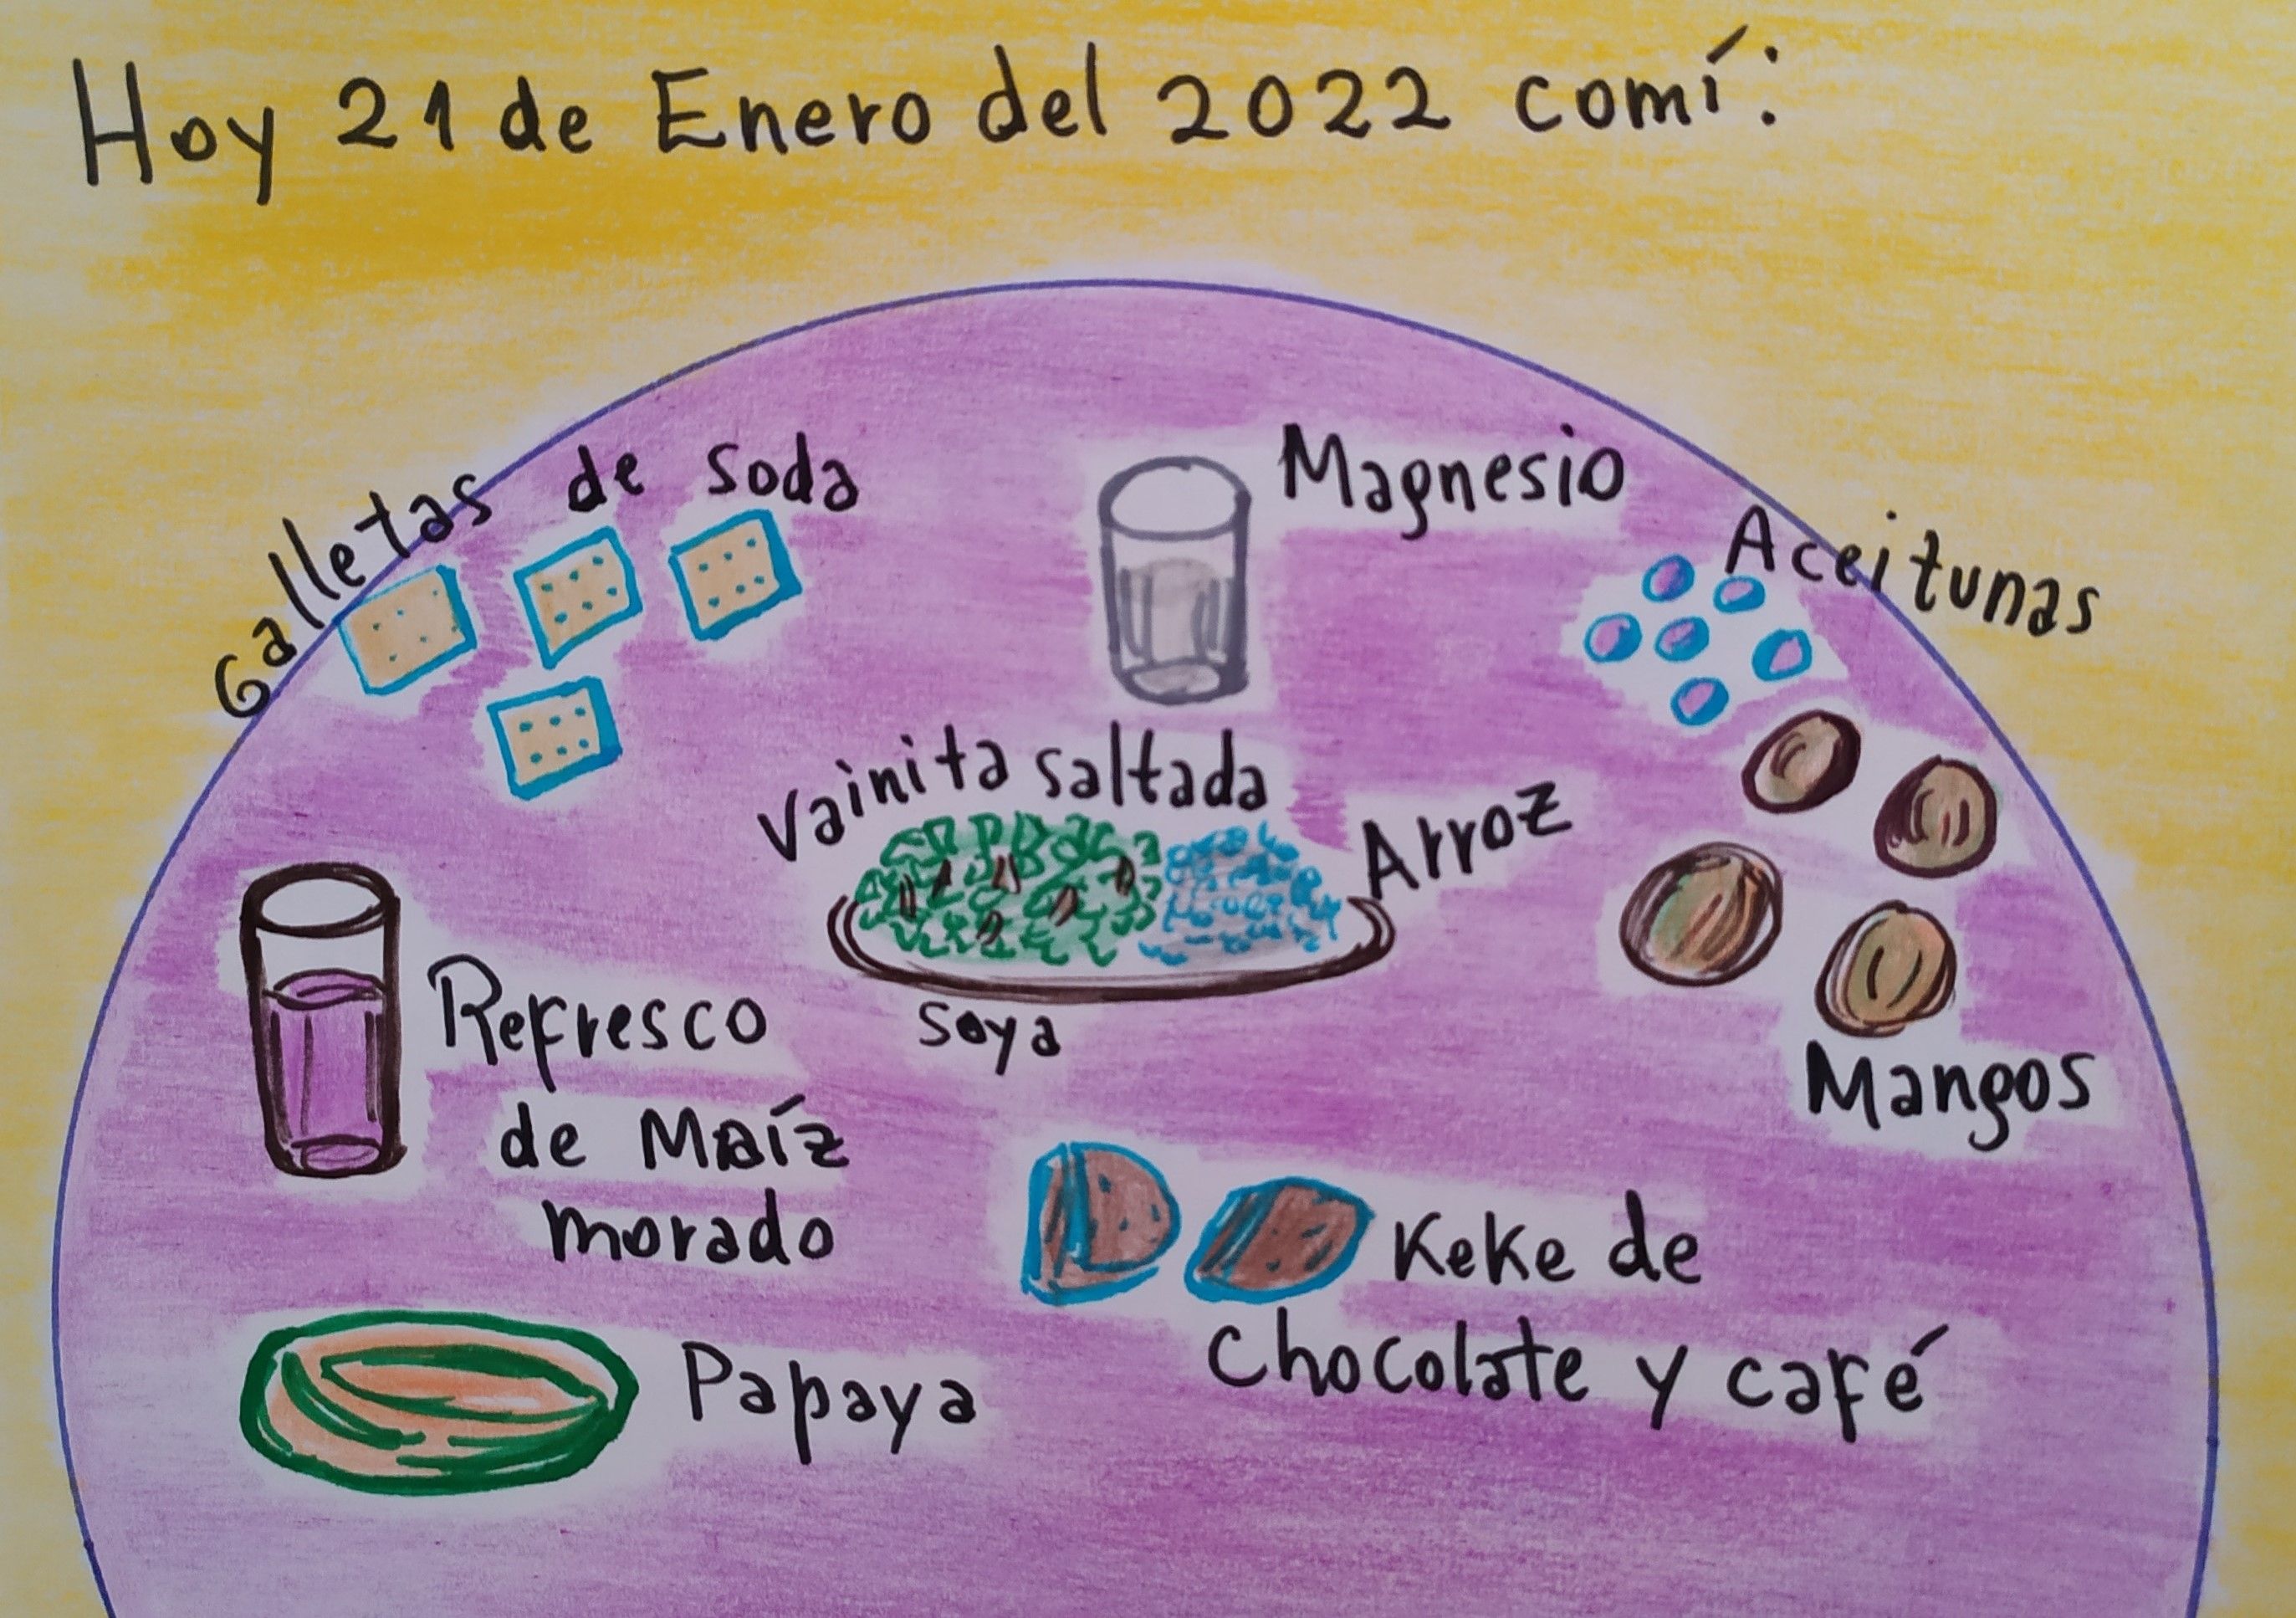 Hoy 21 de Enero del 2022 comí:
Galletas de soda
Magnesio
Aceitunas
Vainita saltada
Arroz
Soya
Mangos
Refresco
de Maíz
morado
Keke de
Chocolate y café
Papaya